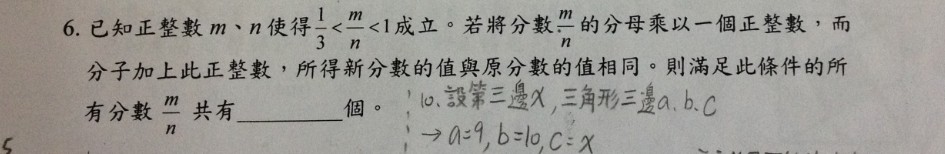 6. 已知正整數 m、n 使得 1/3 < m/n < 1 成立。若將分數 m/n 的分母乘以一個正整數，而
分子加上此正整數，所得新分數的值與原分數的值相同。則滿足此條件的所
有分數 m/n 共有__________個。
10. 設第三邊X, 三角形三邊a.b.c
→ a=9, b=10, c=x
5